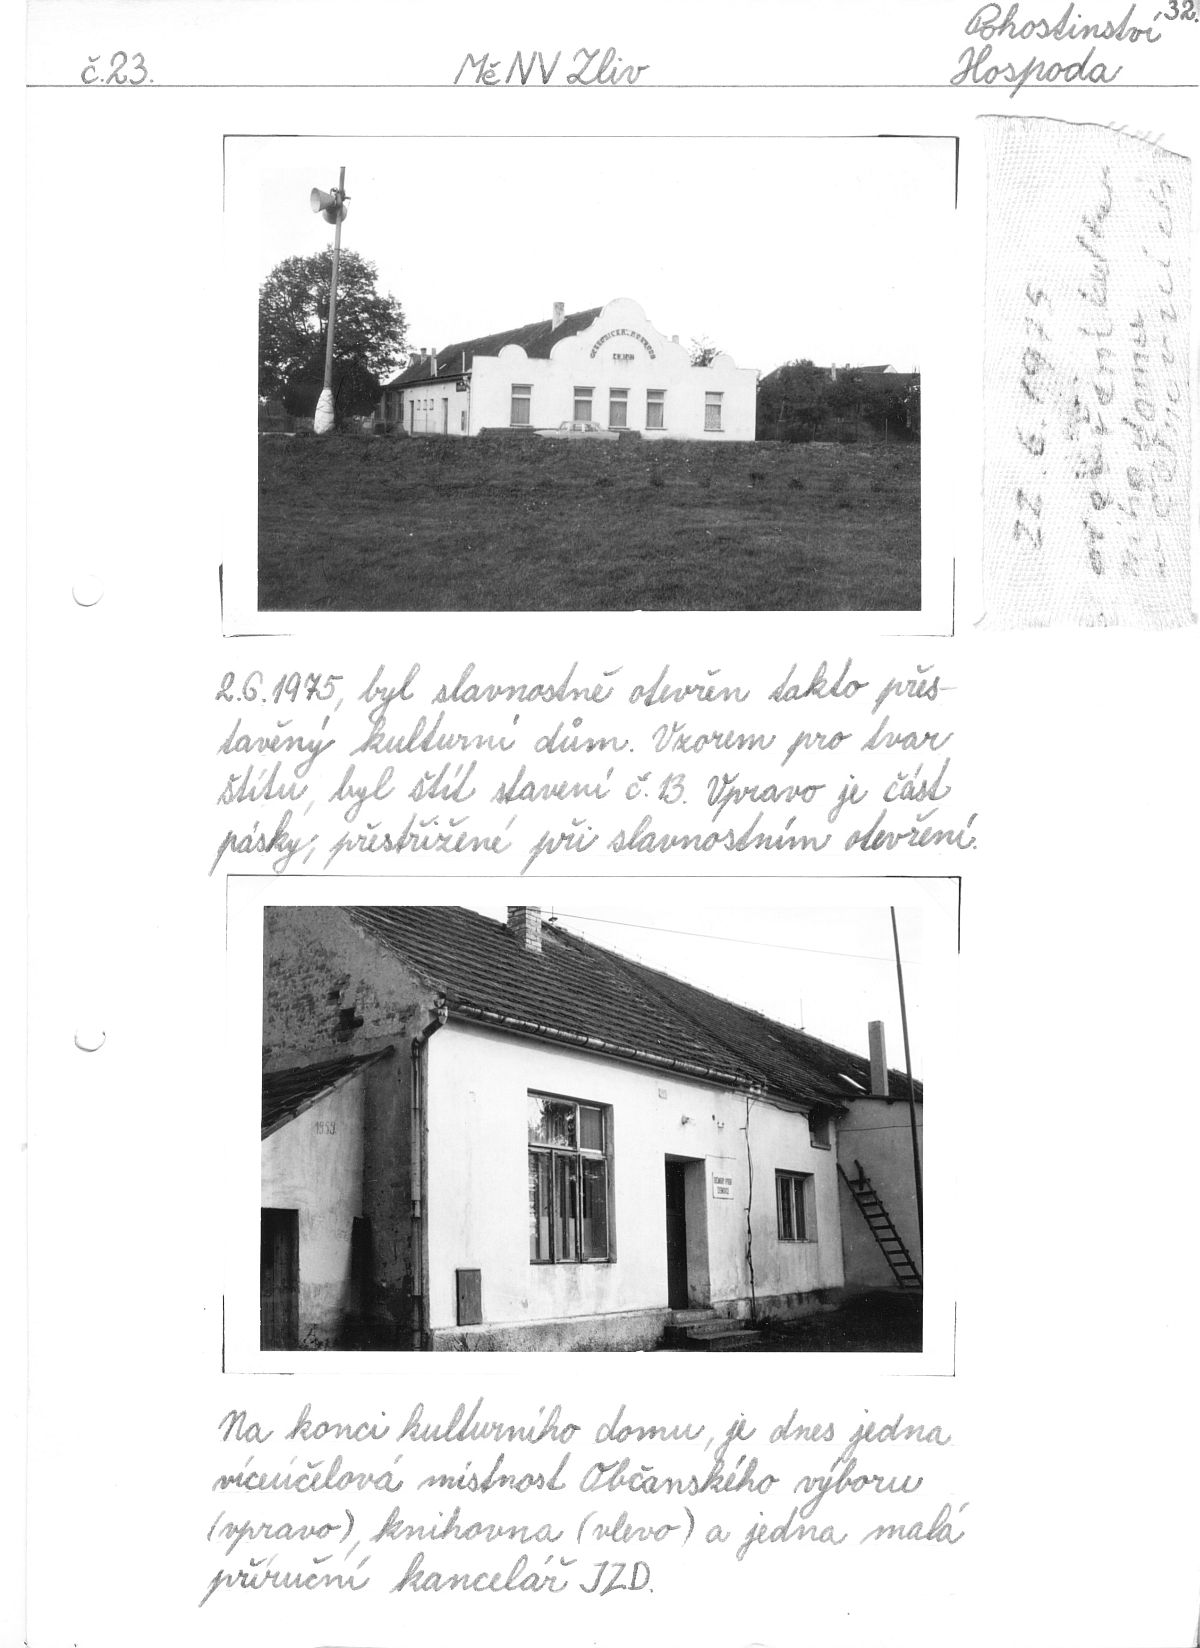 32.
č.23. MěNV Zliv Pohostinství
Hospoda
22.6.1975
otevření kultur
ního domu
2.6.1975, byl slavnostně otevřen takto přes-
tavěný kulturní dům. Vzorem pro tvar
štítu, byl štít stavení č. 13. Vpravo je část
pásky, přestřižené při slavnostním otevření.
1959
Na konci kulturního domu, je dnes jedna
víceúčelová místnost Občanského výboru
(vpravo), knihovna (vlevo) a jedna malá
příruční kancelář JZD.